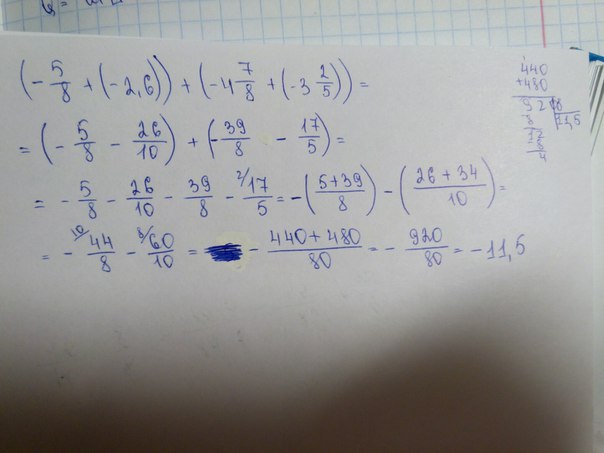 (-5/8 + (-2,6)) + (-4 7/8 + (-3 2/5)) =
= (-5/8 - 26/10) + (-39/8 - 17/5) =
= -5/8 - 26/10 - 39/8 - 2/ 17/5 = -((5+39)/8) - ((26+34)/10) =
= - 10/ 44/8 - 8/ 60/10 = - (440+480)/80 = - 920/80 = -11,5
440
+480
920 8
8 11,5
12
-8
4